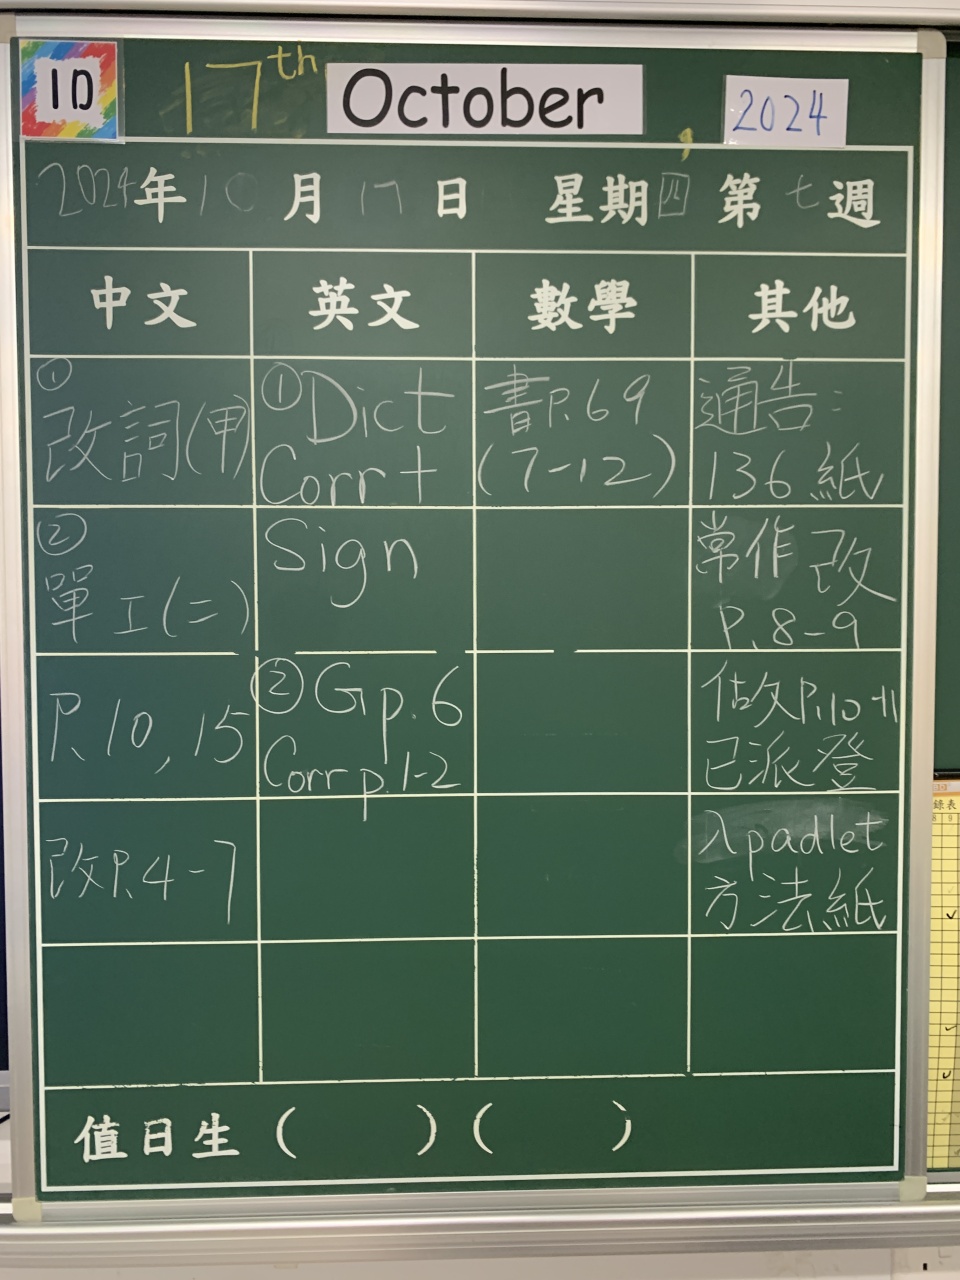 1D 17th October 2024
2024年10月17日 星期四 第七週
中文 英文 數學 其他
①
改詞(甲)
②
單工(二)
P.10,15
改P.4-7
①Dict
Corr +
Sign
②G p.6
Corr p.1-2
書P.69
(7-12)
通告:
136 紙
常作 改
P.8-9
P.10-11
已派登
入padlet
方法紙
值日生 ( ) ( )